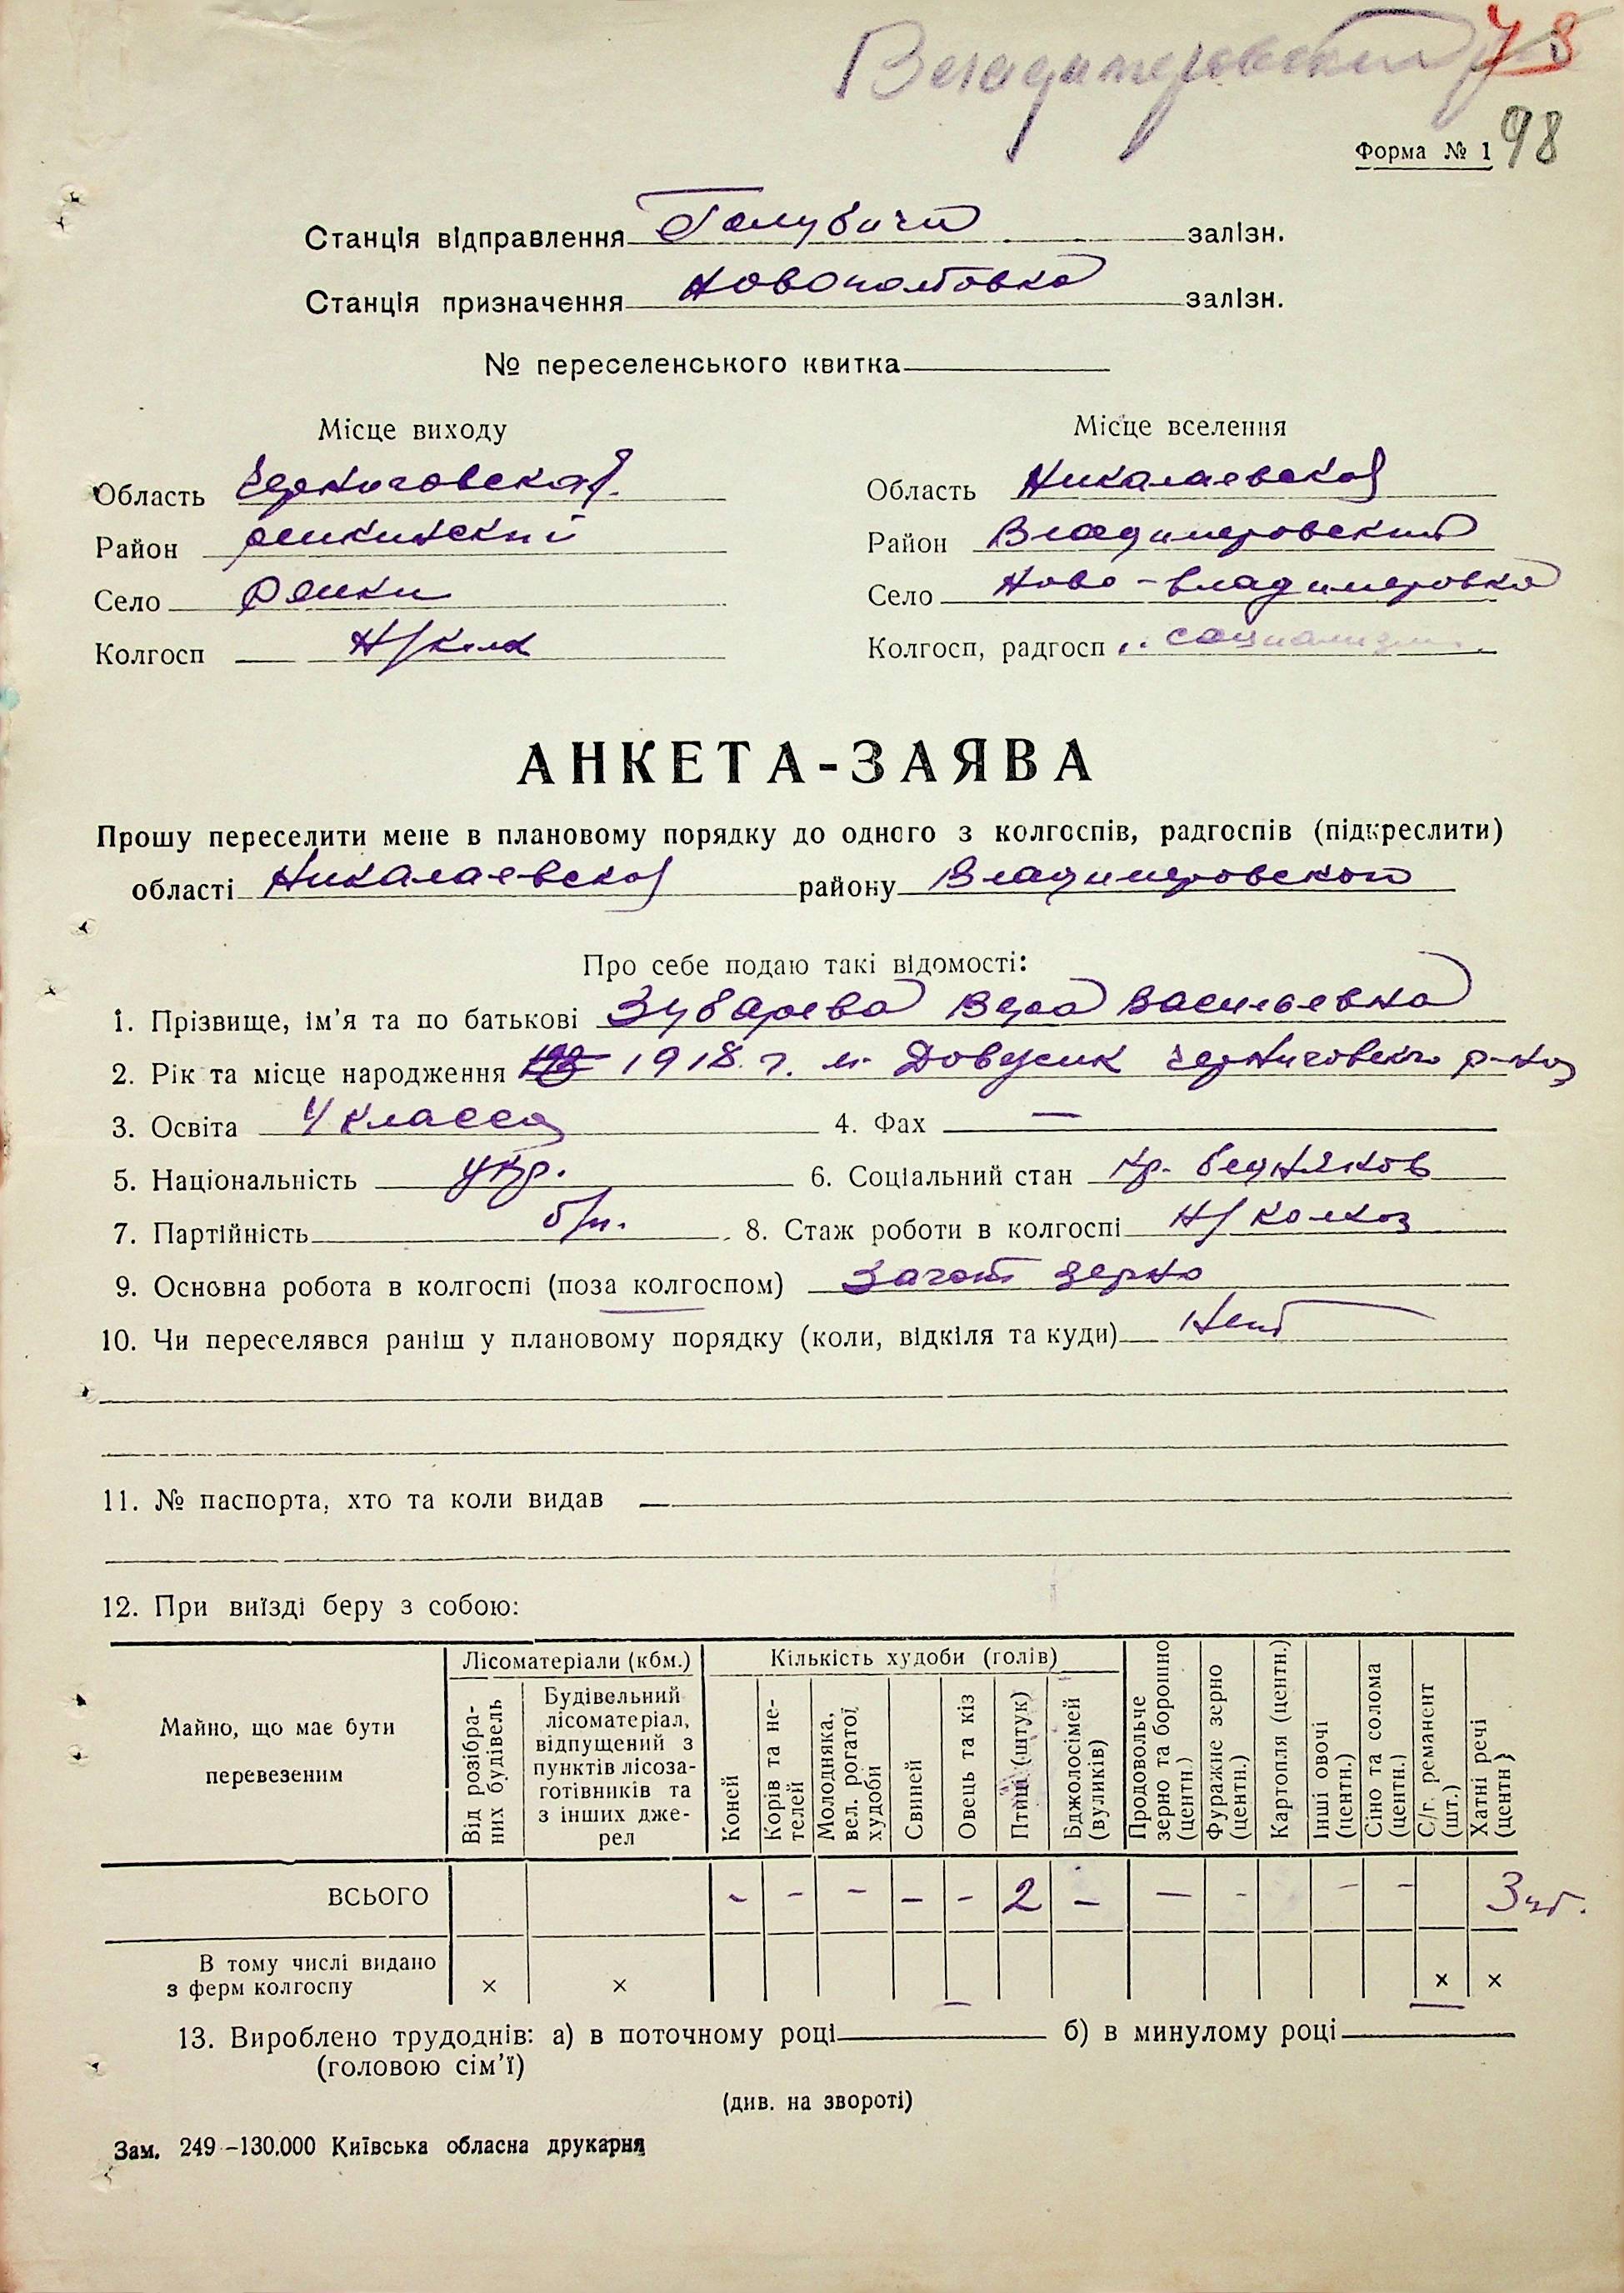 Владимировский р-н
98
Форма № 1
Станція відправлення Голубичи залізн.
Станція призначення Новополтовка залізн.
№ переселенського квитка
Місце виходу Місце вселення
Область Черниговская Область Николаевской
Район репкинский Район Владимировский
Село Репки Село Ново-Владимировка
Колгосп Н/колх Колгосп, радгосп „социализм"
АНКЕТА-ЗАЯВА
Прошу переселити мене в плановому порядку до одного з колгоспів, радгоспів (підкреслити)
області Николаевской району Владимировского
Про себе подаю такі відомості:
1. Прізвище, ім'я та по батькові Зубарева Вера Васильевна
2. Рік та місце народження 1918 г. м. Довжик Черниговского р-на
3. Освіта 4 класса 4. Фах —
5. Національність укр. 6. Соціальний стан кр. бедняков
7. Партійність б/п. 8. Стаж роботи в колгоспі Н/колхоз
9. Основна робота в колгоспі (поза колгоспом) Загот зерно
10. Чи переселявся раніш у плановому порядку (коли, відкіля та куди) Нет
11. № паспорта, хто та коли видав —
12. При виїзді беру з собою:
Майно, що має бути перевезеним
Лісоматеріали (кбм.)
Від розібраних будівель
Будівельний лісоматеріал, відпущений з пунктів лісозаготівників та з інших джерел
Кількість худоби (голів)
Коней
Корів та нетелей
Молодняка, вел. рогатої худоби
Свиней
Овець та кіз
Птиці (штук)
Бджолосімей (вуликів)
Продовольче зерно та борошно (центн.)
Фуражне зерно (центн.)
Картопля (центн.)
Інші овочі (центн.)
Сіно та солома (центн.)
С/г. реманент (шт.)
Хатні речі (центн)
ВСЬОГО - - - - - 2 - - - - - 3 цт.
В тому числі видано з ферм колгоспу × × × ×
13. Вироблено трудоднів: а) в поточному році б) в минулому році
(головою сім'ї)
(див. на звороті)
Зам. 249-130.000 Київська обласна друкарня